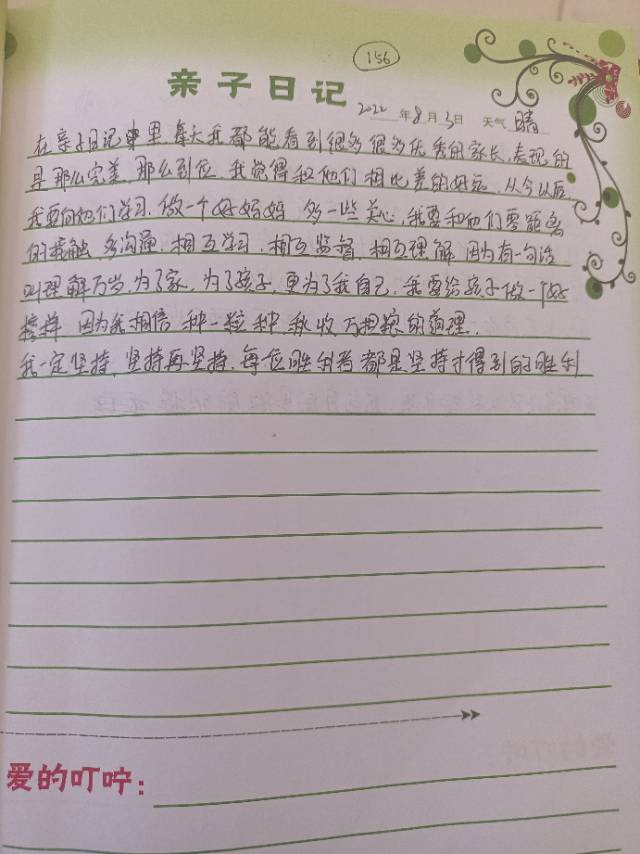 156
亲子日记
2022年8月3日 天气 晴
在亲子日记里每天我都能看到很多很多优秀的家长,表现的
是那么完美,那么到位,我觉得和他们相比差的好远,从今以后,
我要向他们学习,做一个好妈妈,多一些关心,我要和他们零距离
的接触,多沟通,相互学习,相互监督,相互理解,因为有一句话
叫理解万岁,为了家,为了孩子,更为了我自己,我要给孩子做一个好
榜样,因为我相信种一粒种秋收万担粮的道理,
我一定坚持,坚持再坚持,每位胜利者都是坚持才得到的胜利
爱的叮咛: